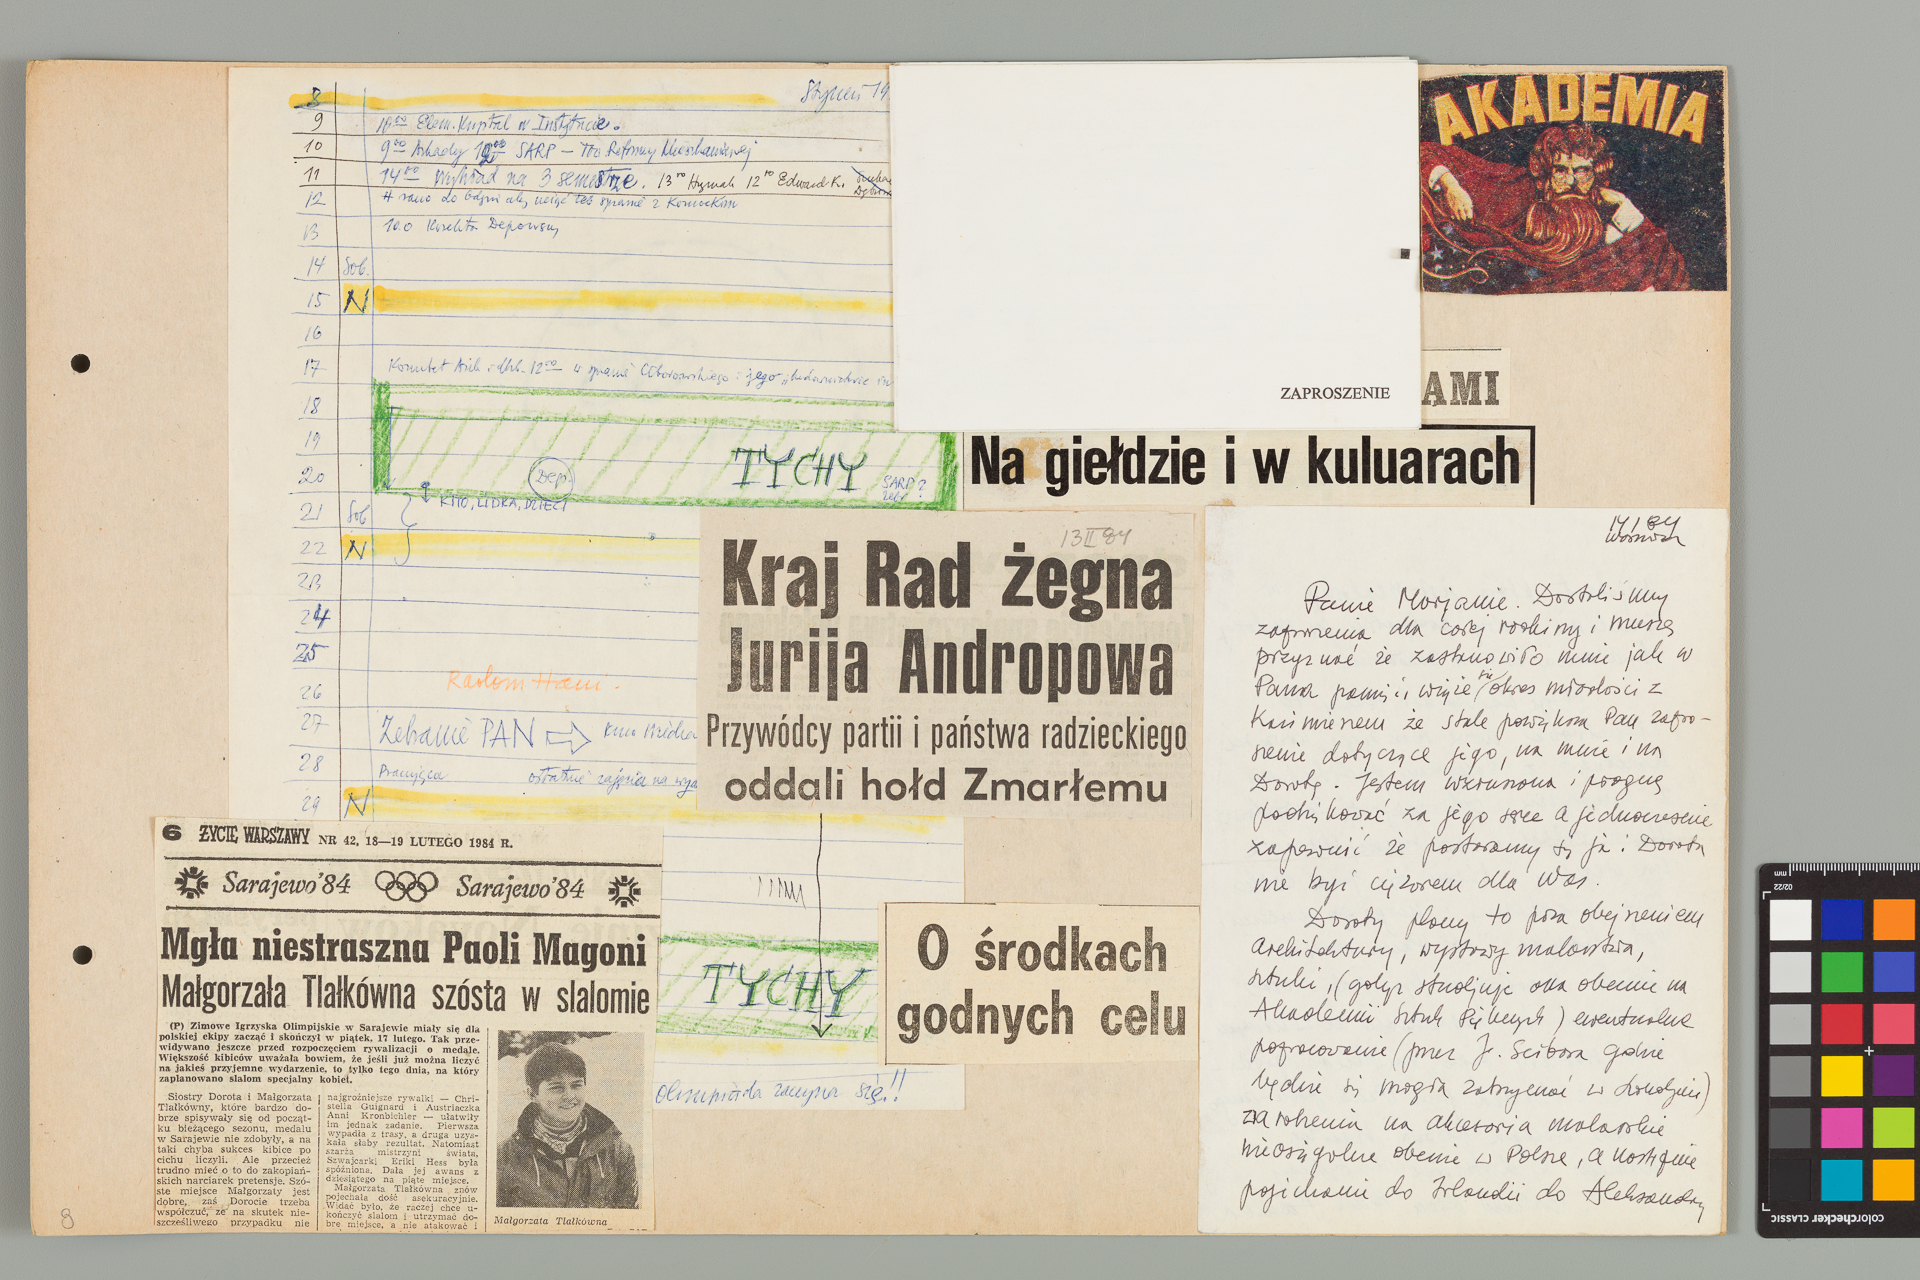 8 Styczeń 19
9 10⁰⁰ Elem. Kupital w Instytucie.
10 9⁰⁰ Arkady 12⁰⁰ SARP — Tto Reformy Mieszkaniowej
11 14⁰⁰ Wykład na 3 semestrze. 13⁰⁰ Hyrmak 12⁰⁰ Edward K.
12 # rano do
13 10.0 Korekta Deposwsy
14 Sob.
15 N
16
17 Komitet Arch. i Urb. 12⁰⁰ w sprawie i jego „budownictwie
18
19 TYCHY
20 Dep. SARP?
21 Sob KMO, LIDKA, DZIECI
22 N
23
24
25
26 Radom Hani.
27 Zebranie PAN ⇨
28 Pracująca ostatnie zajęcia na
29 N
TYCHY
Olimpiada zaczyna się!!
AKADEMIA
ZAPROSZENIE
AMI
Na giełdzie i w kuluarach
13 II 84
Kraj Rad żegna
Jurija Andropowa
Przywódcy partii i państwa radzieckiego
oddali hołd Zmarłemu
O środkach
godnych celu
6 ŻYCIE WARSZAWY NR 42, 18—19 LUTEGO 1984 R.
Sarajewo'84 Sarajewo'84
Mgła niestraszna Paoli Magoni
Małgorzata Tlałkówna szósta w slalomie
(P) Zimowe Igrzyska Olimpijskie w Sarajewie miały się dla
polskiej ekipy zacząć i skończyć w piątek, 17 lutego. Tak prze-
widywano jeszcze przed rozpoczęciem rywalizacji o medale.
Większość kibiców uważała bowiem, że jeśli już można liczyć
na jakieś przyjemne wydarzenie, to tylko tego dnia, na który
zaplanowano slalom specjalny kobiet.
Siostry Dorota i Małgorzata
Tlałkówny, które bardzo do-
brze spisywały się od począt-
ku bieżącego sezonu, medalu
w Sarajewie nie zdobyły, a na
taki chyba sukces kibice po
cichu liczyli. Ale przecież
trudno mieć o to do zakopiań-
skich narciarek pretensje. Szó-
ste miejsce Małgorzaty jest
dobre, zaś Dorocie trzeba
współczuć, że na skutek nie-
szczęśliwego przypadku nie
najgroźniejsze rywalki — Chri-
stella Guignard i Austriaczka
Anni Kronbichler — ułatwiły
im jednak zadanie. Pierwsza
wypadła z trasy, a druga uzys-
kała słaby rezultat. Natomiast
szarża mistrzyni świata,
Szwajcarki Eriki Hess była
spóźniona. Dała jej awans z
dziesiątego na piąte miejsce.
Małgorzata Tlałkówna znów
pojechała dość asekuracyjnie.
Widać było, że raczej chce u-
kończyć slalom i utrzymać do-
bre miejsce, a nie atakować i
Małgorzata Tlałkówna
8
14 I 84
Warszawa
Panie Marjanie. Dostaliśmy
zaproszenia dla całej rodziny i muszę
przyznać że zastanowiło mnie jak w
Pana pamięci wiąże się okres młodości z
Kazimierzem że stale powiększa Pan zapro-
szenie dotyczące jego, na mnie i na
Dorotę. Jestem wzruszona i pragnę
podziękować za jego serce a jednocześnie
zapewnić że postaramy się ja i Dorota
nie być ciężarem dla Was.
Doroty plany to poza obejrzeniem
Architektury, wystawy malarstwa,
sztuki, (gdyż studjuje ona obecnie na
Akademii Sztuk Pięknych) ewentualne
popracowanie (przez J. Ścibora gdzie
będzie się mogła zatrzymać w Londynie)
zarobienia na akcesoria malarskie
nieosiągalne obecnie w Polsce, a następnie
pojechanie do Irlandii do Aleksandry
mm
02/22
colorchecker CLASSIC